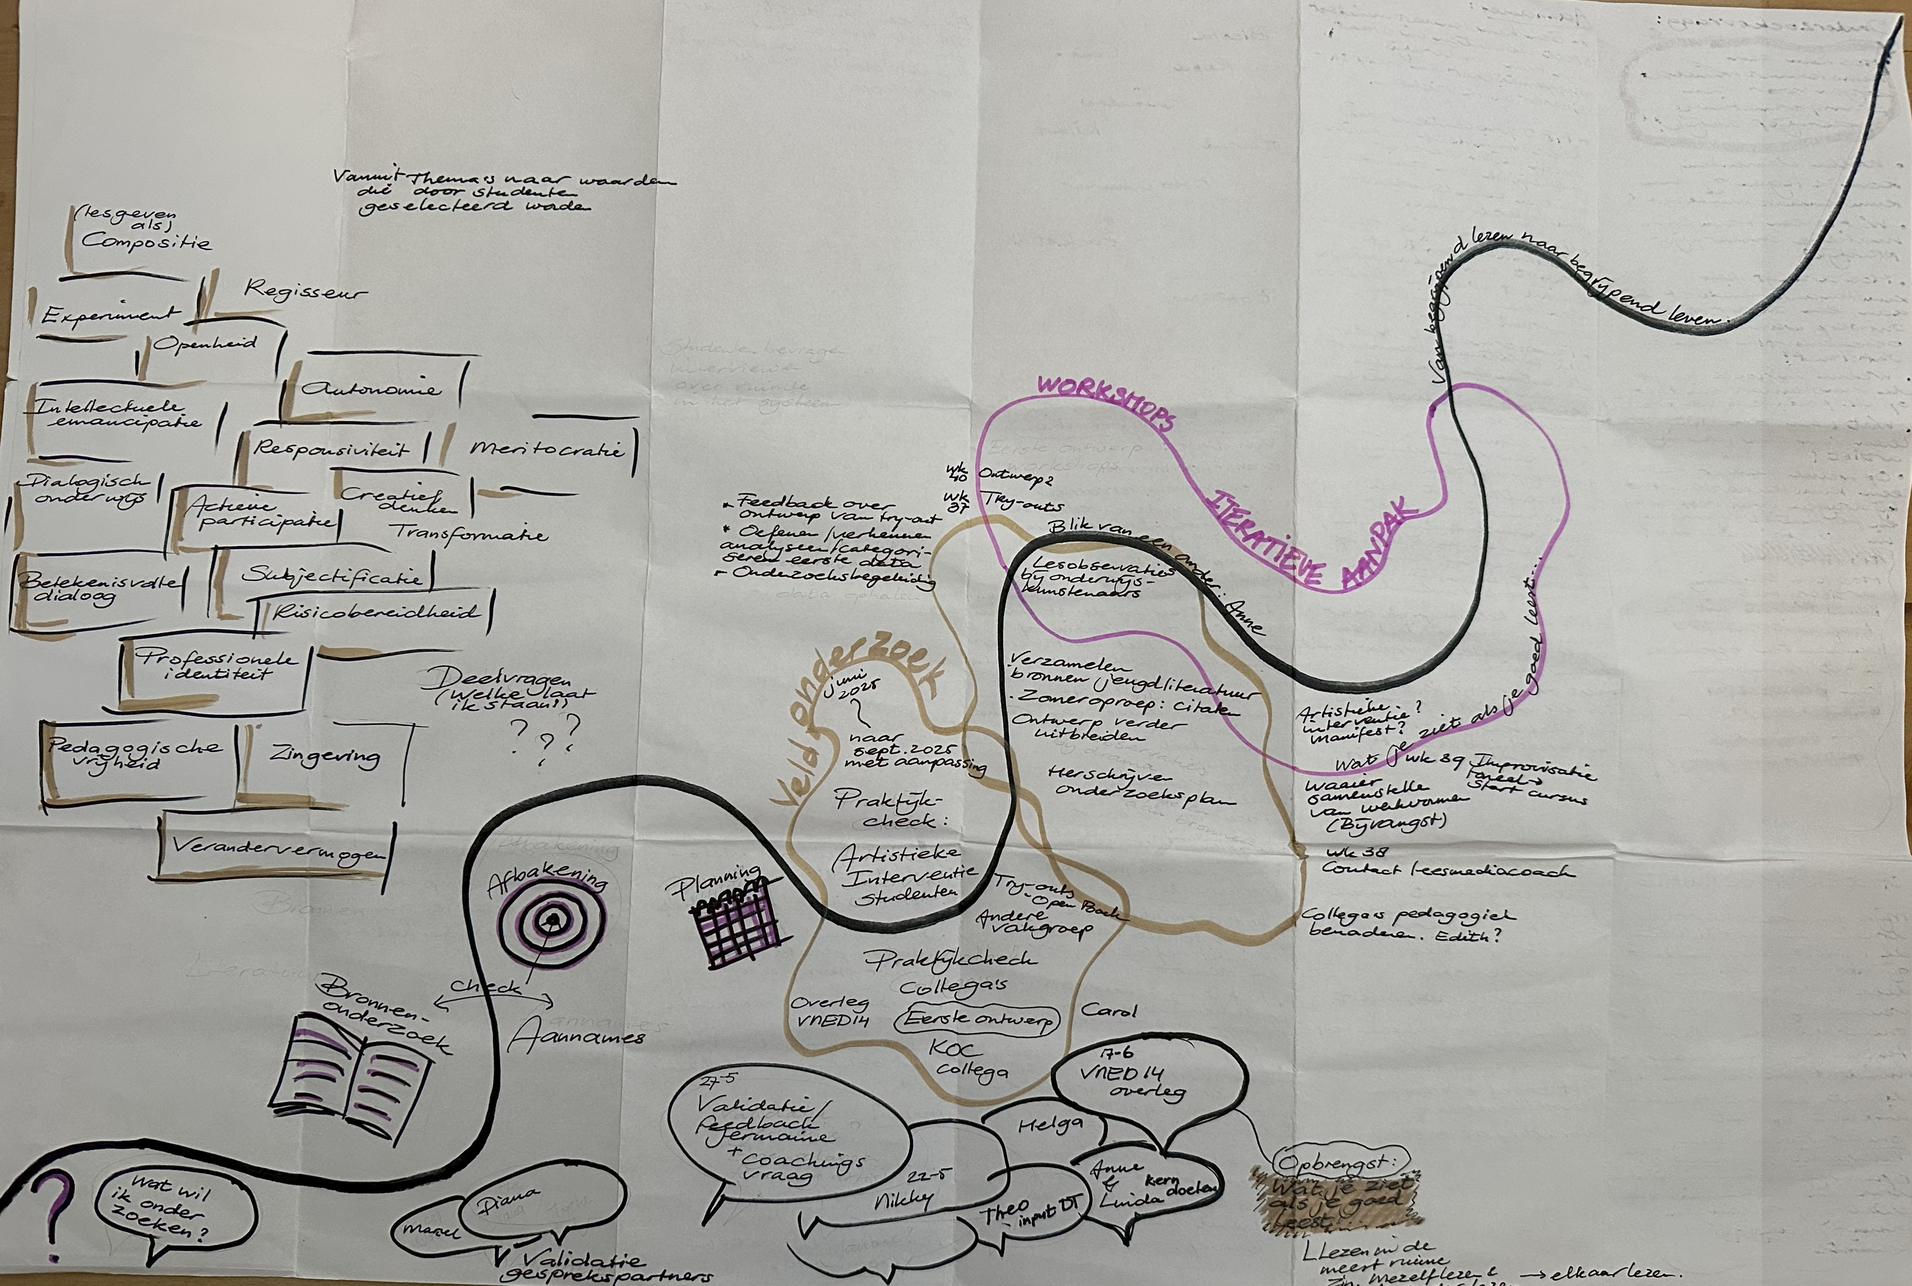 Vanuit Thema's naar waarden
die door studenten
geselecteerd worden
(lesgeven
als)
Compositie
Regisseur
Experiment
Openheid
Autonomie
Intellectuele
emancipatie
Responsiviteit
Meritocratie
Dialogisch
onderwijs
Actieve
participatie
Creatief
denken
Transformatie
Betekenisvolle
dialoog
Subjectificatie
Risicobereidheid
Professionele
identiteit
Deelvragen
(welke laat
ik staan?)
? ? ?
Pedagogische
vrijheid
Zingeving
Verandervermogen
Afbakening
check
Bronnen-
onderzoek
Aannames
?
Wat wil
ik onder
zoeken?
Marcel
Diana
Validatie
gesprekspartners
Planning
Veldonderzoek
juni
2025
naar
sept. 2025
met aanpassing
Praktijk-
check:
Artistieke
Interventie
Studenten
Try-outs
Open Boek
Andere
vakgroep
Praktijkcheck
Collega's
Overleg
VNED14
Eerste ontwerp
Carol
KOC
collega
27-5
Validatie/
feedback
Jermaine
+ coachings
vraag
22-5
Nikky
Helga
17-6
VNED14
overleg
Theo
input DT
Anne
& Linda
kern
doelen
Opbrengst:
Wat je ziet
als je goed
leest...
Lezen in de
meest ruime
→ elkaar lezen.
WORKSHOPS
ITERATIEVE AANPAK
wk
40
Ontwerp 2
wk
37
Try-outs
* Feedback over
ontwerp van try-out
* Oefenen/verkennen
analyseren/categori-
seren eerste data
* Onderzoeksbegeleiding
Blik van een ander: Anne
Lesobservaties
bij onderwijs-
kunstenaars
Verzamelen
bronnen jeugdliteratuur
. Zomeroproep: citaten
Ontwerp verder
uitbreiden
Herschrijven
onderzoeksplan
Van begrijpend lezen naar begrijpend leven.
Wat je ziet als je goed leest...
Artistieke
interventie?
Manifest?
wk 39 Improvisatie
toneel →
Start cursus
Waaier
samenstellen
van werkvormen
(Bijvangst)
wk 38
Contact leesmediacoach
Collega's pedagogiek
benaderen. Edith?